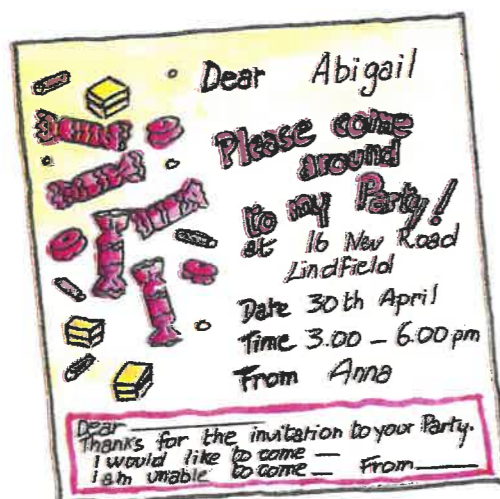 Dear Abigail
Please come
around
to my Party!
at 16 New Road
Lindfield
Date 30th April
Time 3.00 - 6.00 pm
From Anna
Dear
Thanks for the invitation to your Party.
I would like to come
I am unable to come From